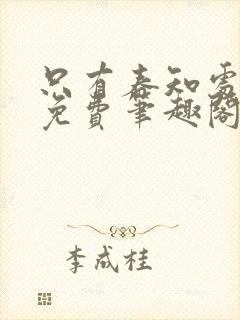 只有春知处
免费笔趣阁
李成桂